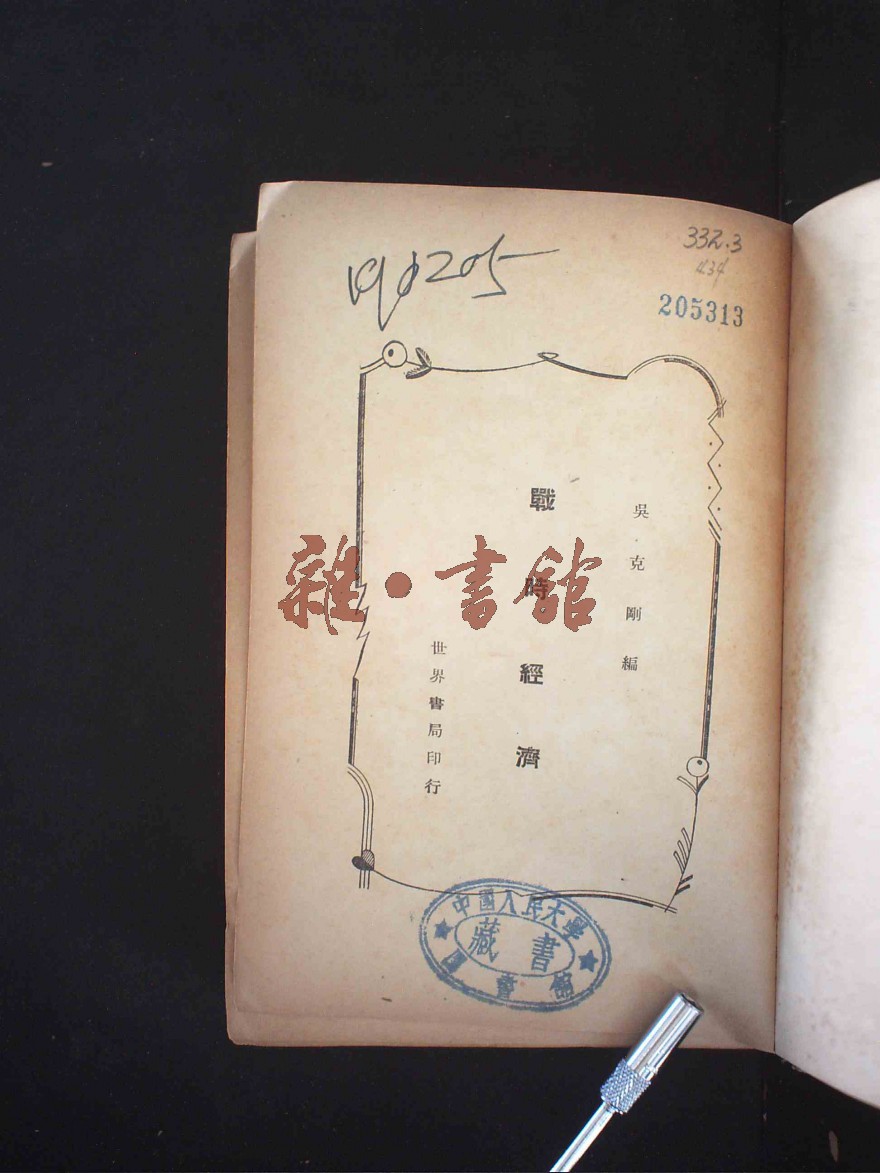 332.3
434
205313
吳克剛編
戰時經濟
世界書局印行
雜·書館
中國人民大學
圖書館
藏書